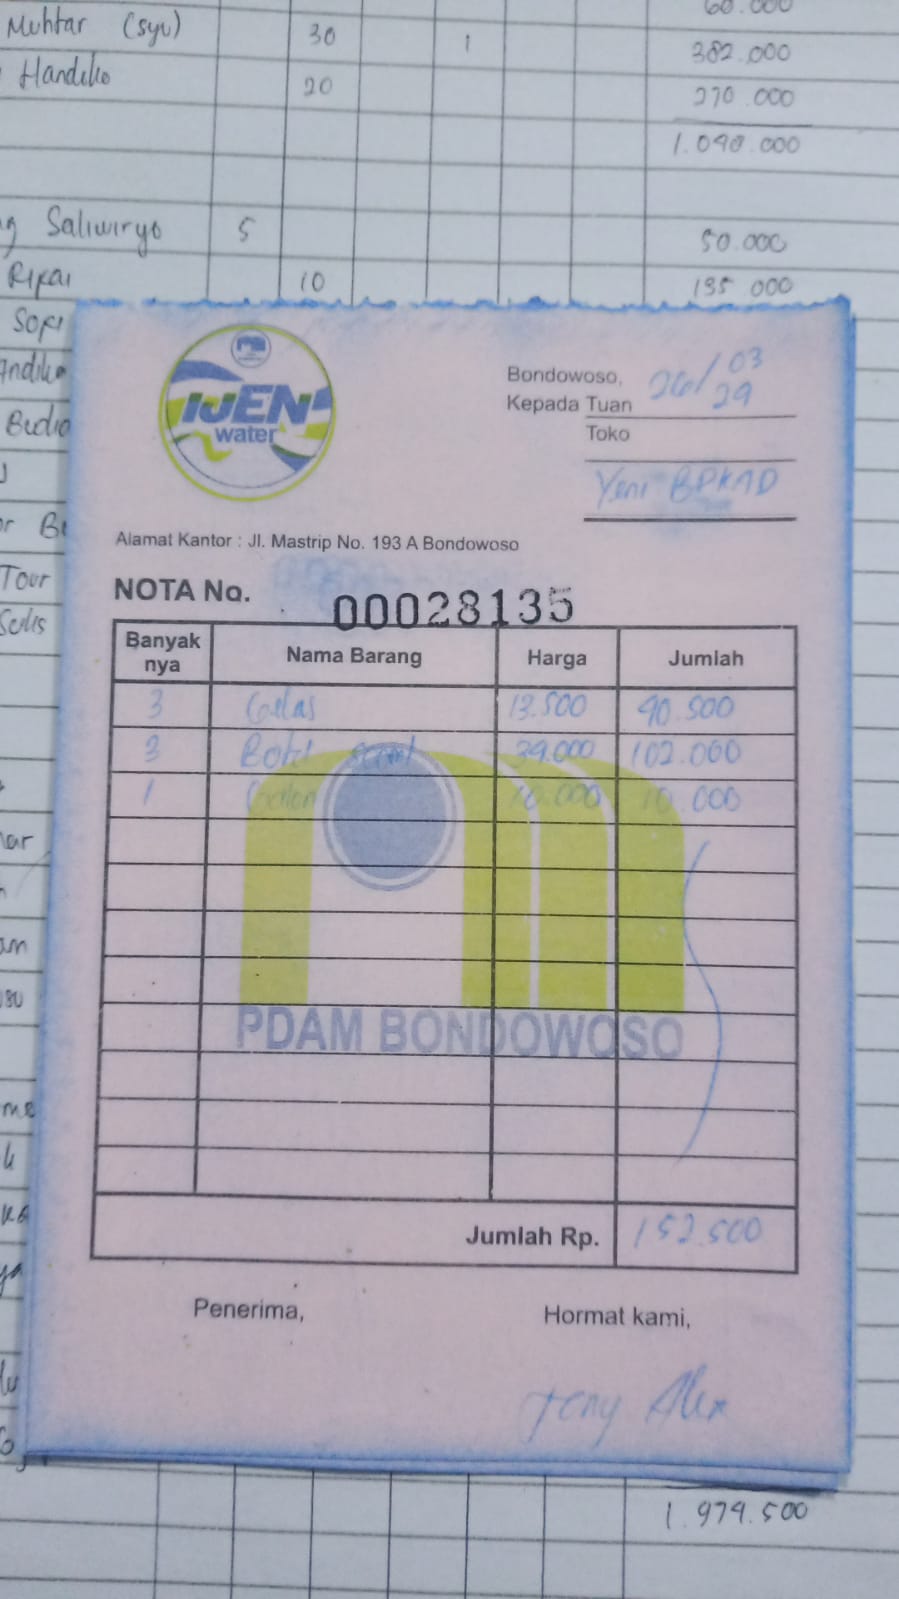 Muhtar (syu) 30 1 382.000
Handiko 20 270.000
1.090.000
Saliwiryo 5 50.000
Rifai 10 135.000
Sofi
Andika
Budi
Tour
Sulis
IJEN
water
Bondowoso, 26/03
Kepada Tuan 29
Toko
Yeni BPKAD
Alamat Kantor : Jl. Mastrip No. 193 A Bondowoso
NOTA No. 00028135
Banyak nya Nama Barang Harga Jumlah
3 Gelas 13.500 40.500
3 Botol 34.000 102.000
1 Galon 10.000 10.000
PDAM BONDOWOSO
Jumlah Rp. 152.500
Penerima, Hormat kami,
Tony Alex
1.979.500